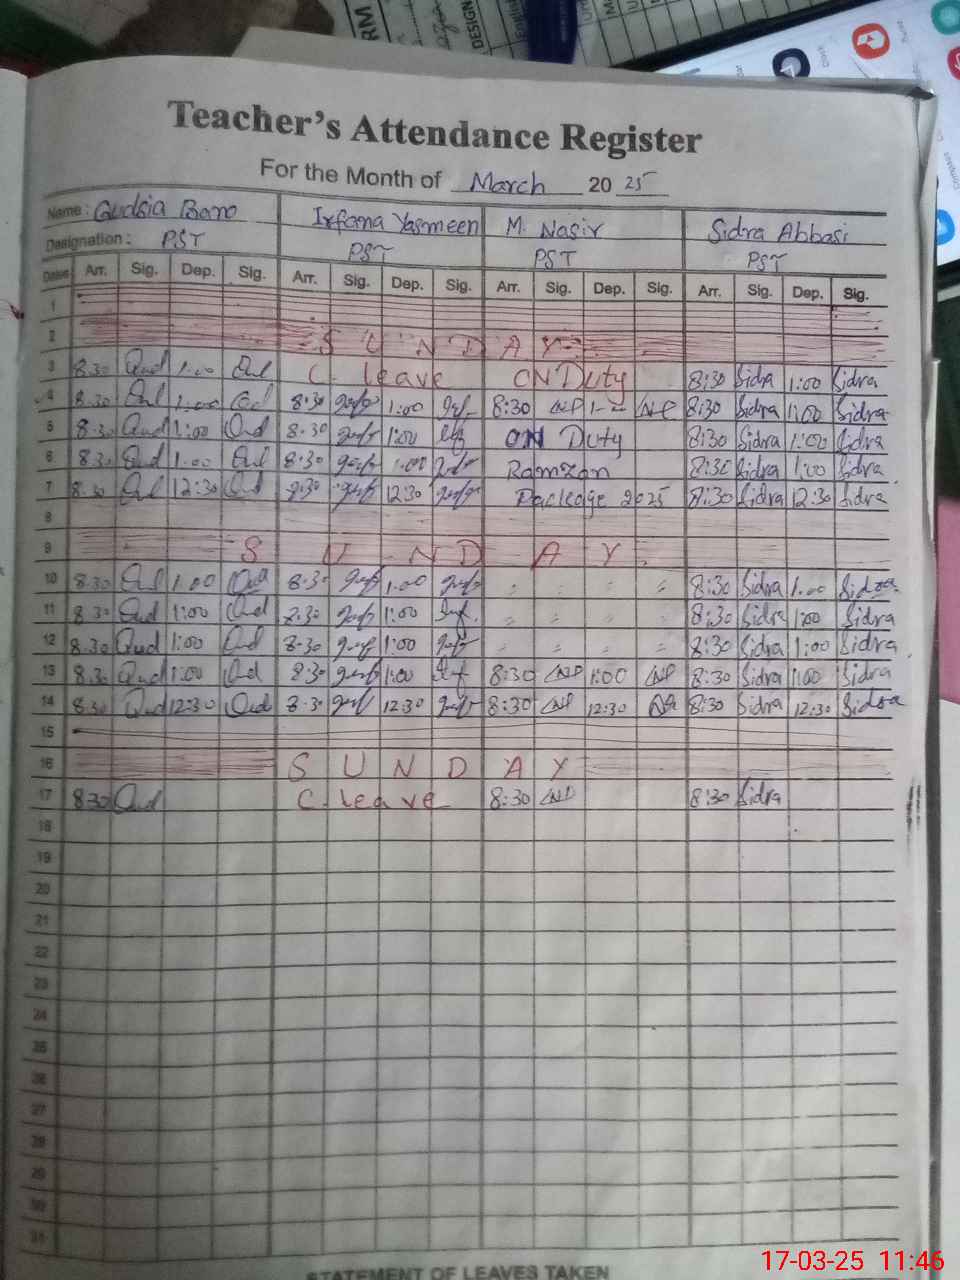 Teacher's Attendance Register
For the Month of March 20 25
Name: Qudsia Bano Irfana Yasmeen M. Nasir Sidra Abbasi
Designation: PST PST PST PST
Dates Arr. Sig. Dep. Sig. Arr. Sig. Dep. Sig. Arr. Sig. Dep. Sig. Arr. Sig. Dep. Sig.
1
2 S U N D A Y
3 8.30 Qud 1:00 Qud C. leave ON Duty 8:30 Sidra 1:00 Sidra
4 8.30 Qud 1:00 Qud 8:30 1:00 8:30 1- 8:30 Sidra 1:00 Sidra
5 8.30 Qud 1:00 Qud 8.30 1:00 ON Duty 8:30 Sidra 1:00 Sidra
6 8.30 Qud 1:00 Qud 8:30 1:00 Ramzan 8:30 Sidra 1:00 Sidra
7 8.30 Qud 12:30 Qud 8:30 12:30 Package 2025 8:30 Sidra 12:30 Sidra
8
9 S U N D A Y
10 8.30 Qud 1.00 Qud 8.30 1.00 " " " " 8:30 Sidra 1.00 Sidra
11 8.30 Qud 1:00 Qud 8.30 1:00 " " " " 8:30 Sidra 1:00 Sidra
12 8.30 Qud 1:00 Qud 8.30 1:00 " " " " 8:30 Sidra 1:00 Sidra
13 8.30 Qud 1:00 Qud 8:30 1:00 8:30 1:00 8:30 Sidra 1:00 Sidra
14 8.30 Qud 12:30 Qud 8.30 12:30 8:30 12:30 8:30 Sidra 12:30 Sidra
15
16 S U N D A Y
17 8:30 Qud C. leave 8:30 8:30 Sidra
18
19
20
21
22
23
24
25
26
27
28
29
30
31
STATEMENT OF LEAVES TAKEN
17-03-25 11:46